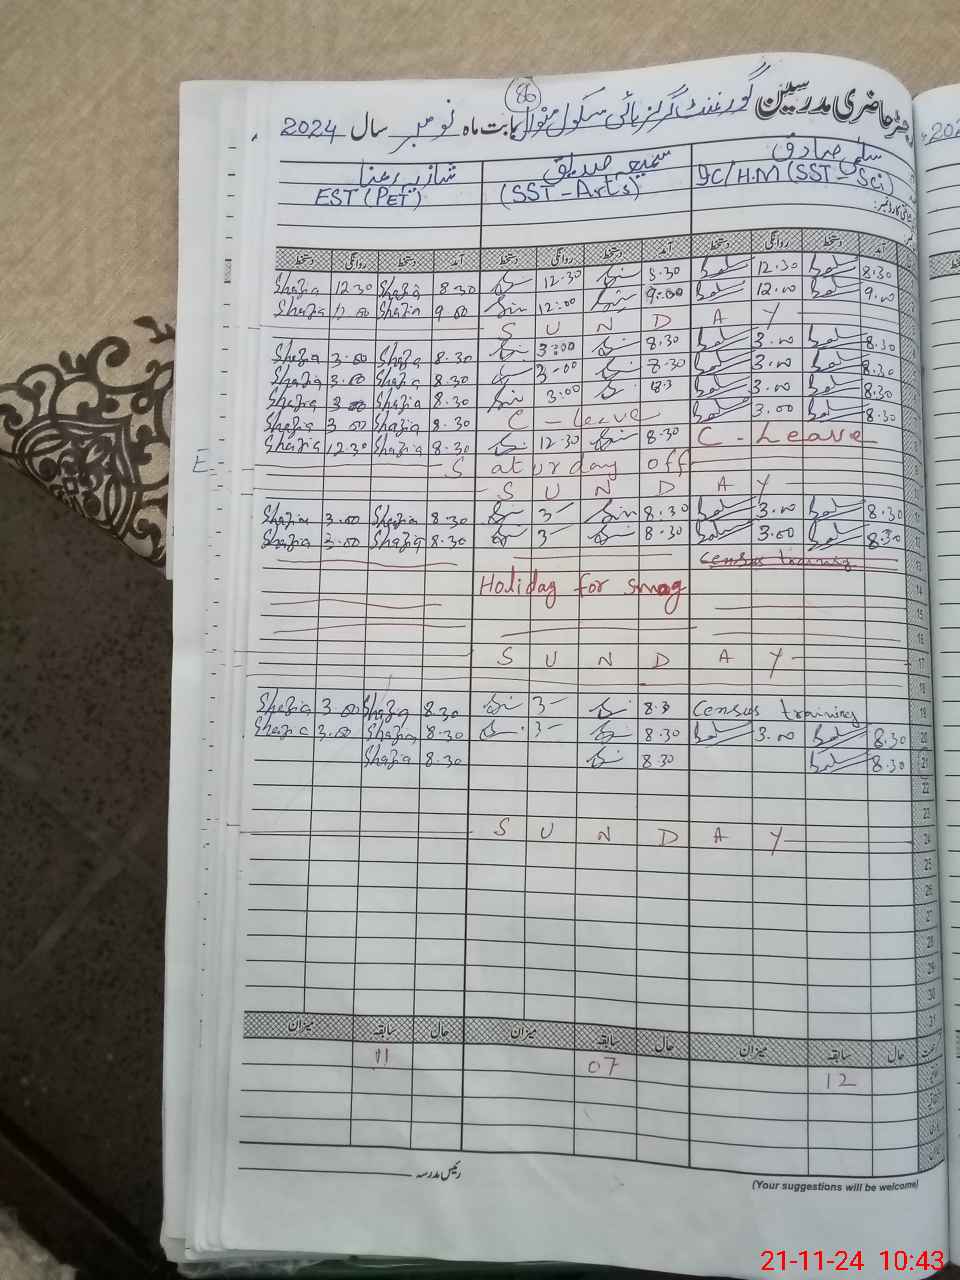 86
رجسٹر حاضری مدرسین گورنمنٹ گرلز ہائی سکول منوال بابت ماہ نومبر سال 2024
سلمیٰ صادق سمیعہ صدیق شازیہ رعنا
IC/H.M (SST-Sci) (SST-Arts) EST (PET)
آمد دستخط روانگی دستخط آمد دستخط روانگی دستخط آمد دستخط روانگی دستخط
Shazia 12.30 Shazia 8.30 12.30 8.30 12.30 8.30
Shazia 12.00 Shazia 9.00 12:00 9:00 12.00 9.00
S U N D A Y
Shazia 3.00 Shazia 8.30 3:00 8.30 3.00 8.30
Shazia 3.00 Shazia 8.30 3-00 8.30 3.00 8.30
Shazia 3.00 Shazia 8.30 3.00 8.3 3.00 8.30
Shazia 3.00 Shazia 8.30 C-leave 3.00 8.30
Shazia 12.30 Shazia 8.30 12.30 8.30 C-Leave 8
E Saturday off 9
S U N D A Y 10
Shazia 3.00 Shazia 8.30 3- 8.30 3.00 8.30 11
Shazia 3.00 Shazia 8.30 3- 8.30 3.00 8.30 12
Census training 13
Holiday for smog 14
15
16
S U N D A Y 17
18
Shazia 3.00 Shazia 8.30 3- 8.3 Census training 19
Shazia 3.00 Shazia 8.30 3- 8.30 3.00 8.30 20
Shazia 8.30 8.30 8.30 21
22
23
S U N D A Y 24
25
26
27
28
29
30
31
حال سابقہ میزان حال سابقہ میزان حال سابقہ میزان
11 07 12
رئیس مدرسہ
(Your suggestions will be welcome)
21-11-24 10:43